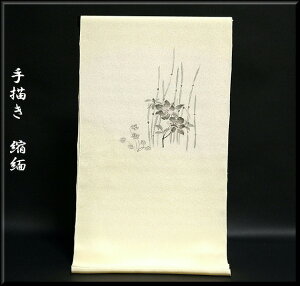 手描き 縮緬